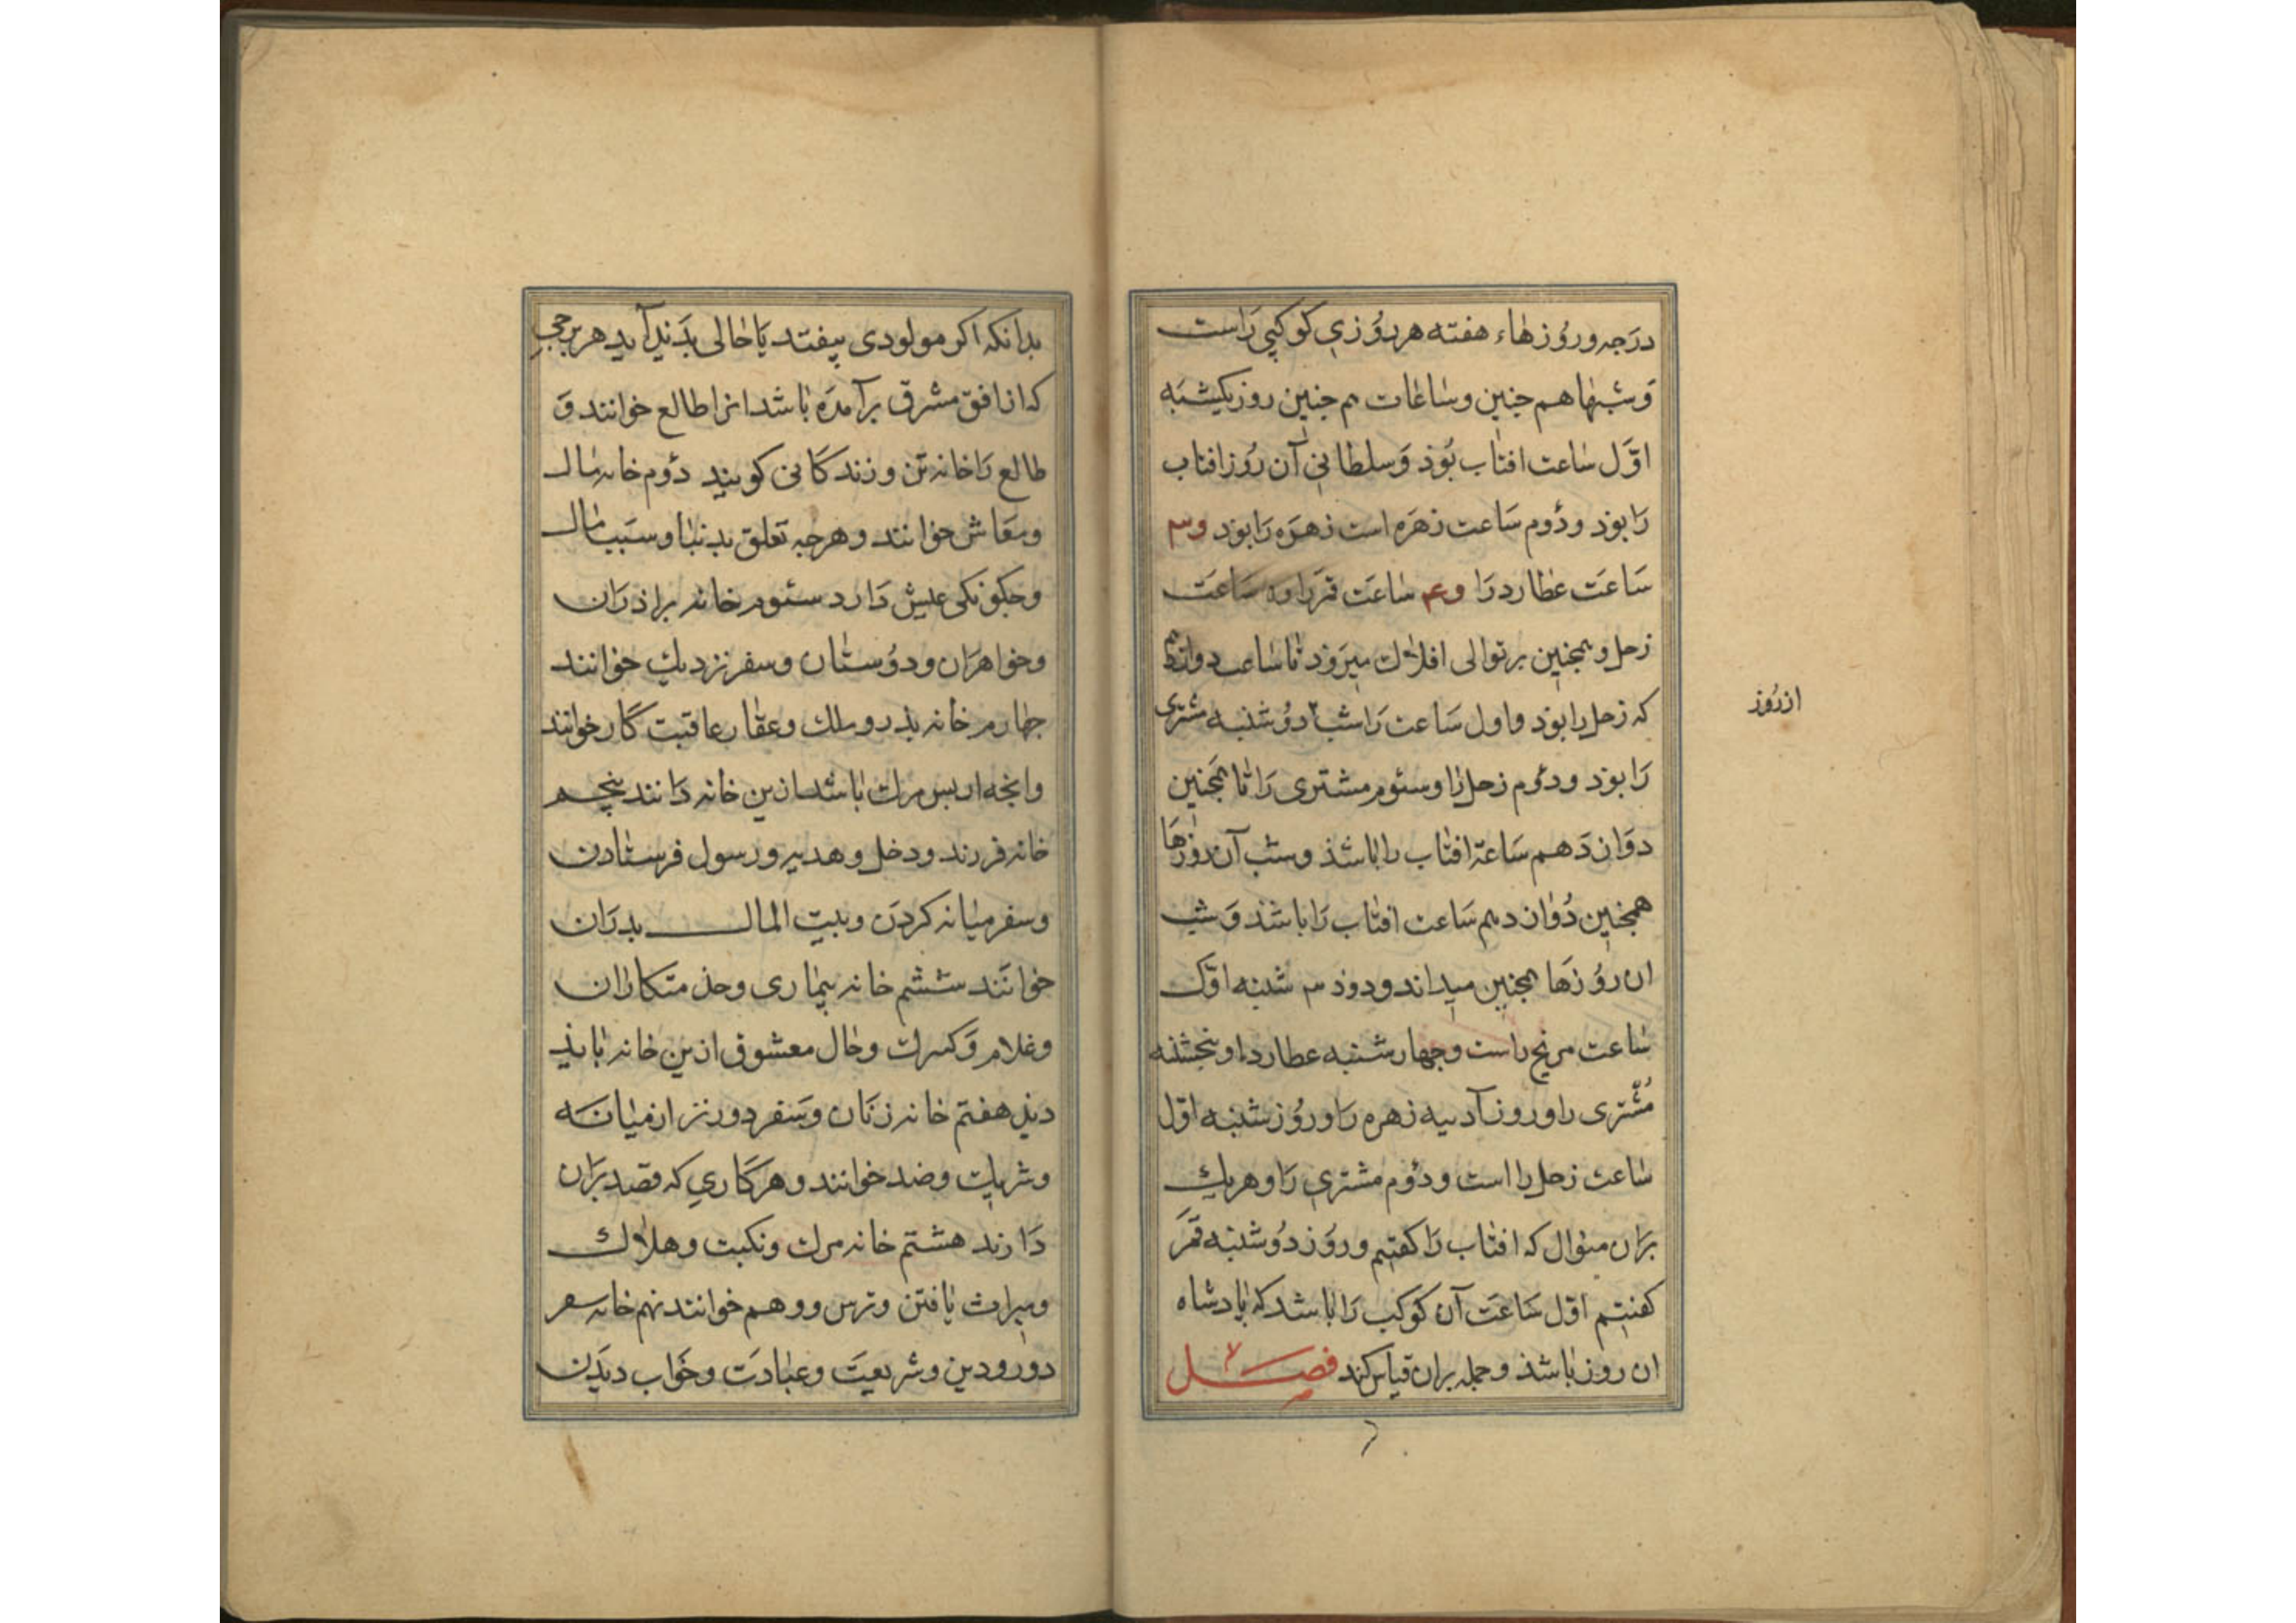 درَجه وروُزهاء هفته هر رُوزی کوکبی رَاست
وَشبها هم جنین وساعات هم جنین روز یکشنبه
اوَّل ساعت افتاب بُوَذ وَسلطانی آن رُوز افتاب
رَا بوَذ ودوُم سَاعت زهَره است زهَره رَا بوَذ وسم
سَاعَت عطارد رَا وعم ساعَت قمَر را وه سَاعَت
زحل وهمجنین بر توالی افلاک میرَوَد تا ساعت دوازدهم
که زحل را بوَد واول سَاعت رَا شب دوُشنبه مشتری
رَا بوَد ودوُم زحل را وسئوم مشتری رَا تا همَجنین
دوَازدَهم سَاعة افتاب را باشذ وشب آن روزها
همجنین دُوازدهم سَاعت افتاب رَا باشذ وَشب
ان روُزهَا همجنین میداند ودوذ سه شنبه اوّل
ساعت مریخ راست وجهارشنبه عطارد را وپنجشنبه
مُشتری را وروز آدینه زهره رَا ورُوز شنبه اوّل
ساعت زحل را است ودوُم مشتری رَا وهر یک
برَان منوال که افتاب رَا کفتیم وروَز دوُشنبه قمَرَ
کفتیم اوّل سَاعَت آن کوکب رَا باشد که پادشاه
ان روز باشذ وجمله بران قیاس کند فصــل
از رُوز
بدانکه اکر مولودی بیفتد یَا حالی بدَید آید هر برجی
که از افق مشرق برآمدَه باشد انرا طالع خوانند وَ
طالع رَا خانه تن وزندکانی کویند دوُم خانه مال
ومعَاش خوانند وهرجه تعلق بدنیا وسَبب مال
وجکونکی عیش دَارد سئوم خانه براذرَان
وخواهرَان ودوُستان وسفر نزدیک خوانند
جهارم خانه بذر وملک وعقار عاقبت کَار خوانند
وانجه از بس مرک باشد ازین خانه دَانند پنجــم
خانه فرزند ودخل وهدیه ورسول فرستادن
وسفر میانه کردَن وبیت المال بدرَان
خوانَند ششم خانه بیماری وخذمتکارَان
وغلام وَکنیزک وحال معشوق ازین خانه باید
دید هفتم خانه زنَان وسَفر دورتر از میانَه
وشریک وضد خوانند وهر کَاری که قصد برَان
دَارند هشتم خانه مرک ونکبت وهلاک
ومیراث یافتن وترس ووهم خوانند نهم خانه سفر
دور ودین وشریعَت وعبادَت وخَواب دیدَن